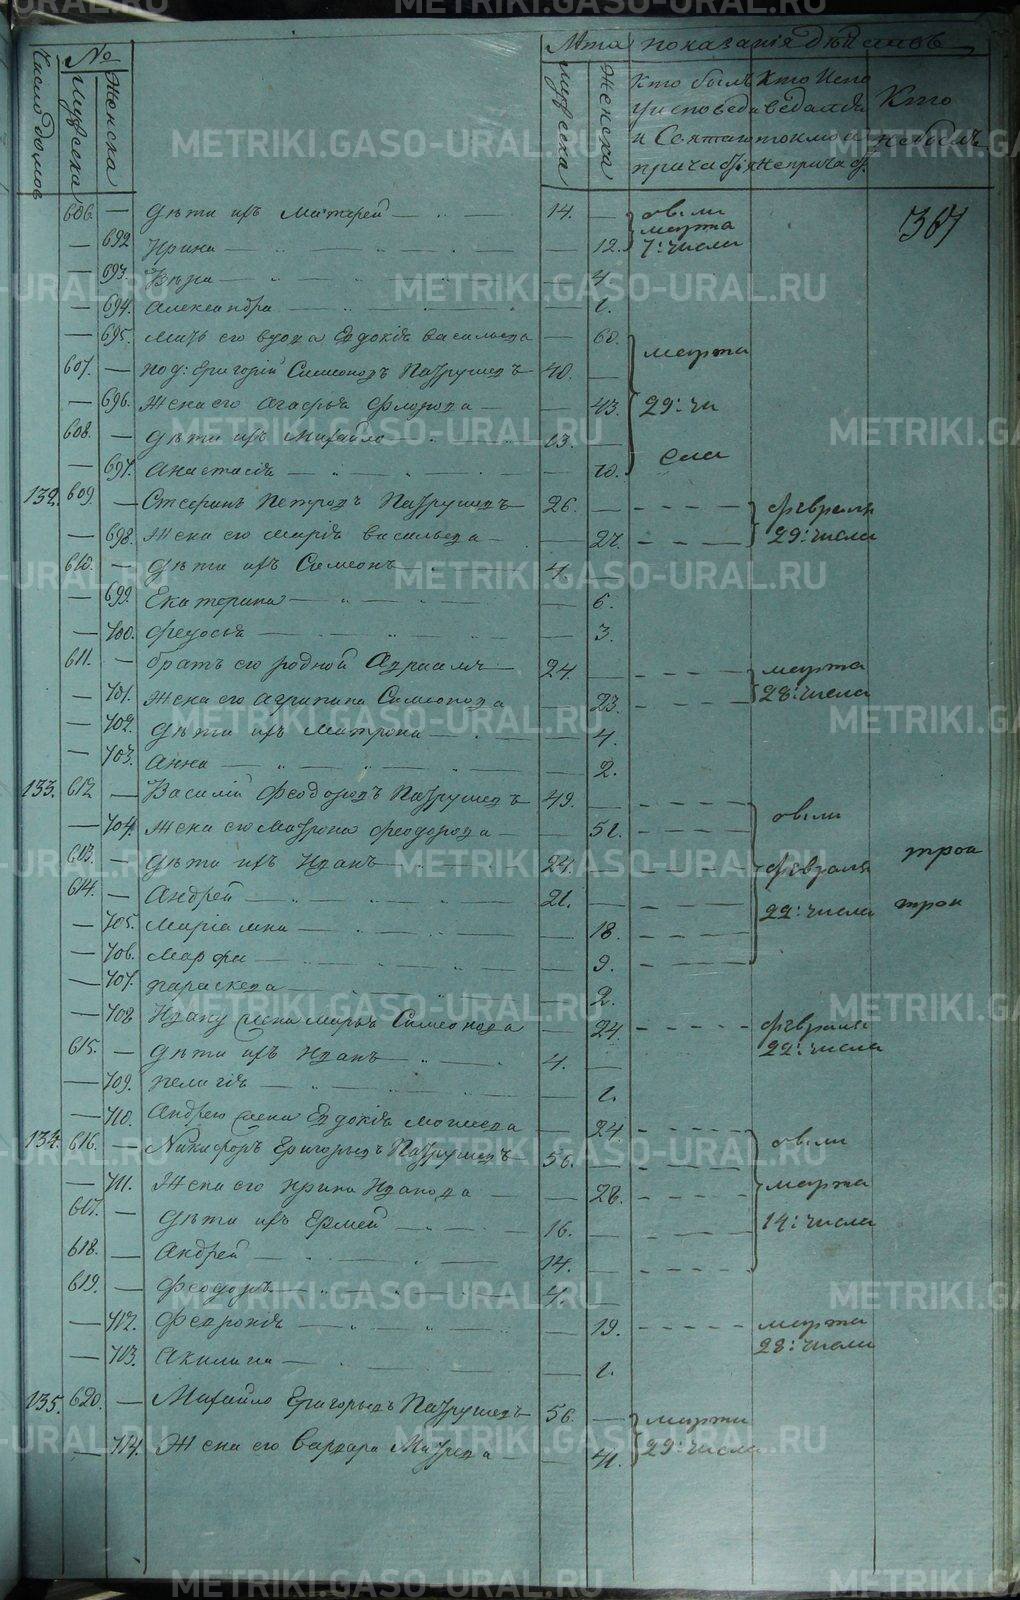 Число домовъ № Мужеска Женска Лѣта Мужеска Женска показанія дѣйсивъ
Кто былъ у исповеди и Святаго причас. Кто Испо ведался а не прича. Кто небылъ
606. — дѣти ихъ Матфей — 14. — овыли марта 7: числа 367
— 692 Ирина — — 12.
— 693. Вѣра — — 4.
— 694. Александра — — 1.
— 695. мать его вдова Евдокія васильева — 60.
607. — под: Григорій Симеоновъ Патрушевъ 40. — марта 29: числа
— 696. Жена его Агафья Флорова — — 43.
608. — дѣти ихъ Михайло 13. —
— 697. Анастасія — — 10.
132. 609. — Стефанъ Петровъ Патрушевъ 26. — февраля 29: числа
— 698. Жена его Марія васильева — — 27.
610. — дѣти ихъ Симеонъ 4. —
— 699. Екатерина — — 6.
— 700. Федосья — — 3.
611. — братъ его родной Адріанъ 24. — марта 28: числа
— 701. Жена его Агрипина Симеонова — 23.
— 702. дѣти ихъ Матрона — — 4.
— 703. Анна — — 2.
133. 612 — Василій Феодоровъ Патрушевъ 49. — овыли
— 704. Жена его Матрона Феодорова — — 51.
613. — дѣти ихъ Иванъ 24. — февраля
614. — Андрей — 21. — 22: числа
— 705. Маріамна — — 18.
— 706. Марфа — — 9.
— 707. параскева — — 2.
— 708 Ивану жена Марья Симеонова — 24. февраля 22: числа
615. — дѣти ихъ Иванъ 4. —
— 709. пелагія — — 1.
— 710. Андрею жена Евдокія моисеева — 24
134. 616. — Никифоръ Григорьевъ Патрушевъ 56. — овыли
— 711. Жена его Ирина Иванова — — 28. марта
617. — дѣти ихъ Ермей 16. — 14: числа
618. — Андрей — 14. —
619. — Феодоръ 4. —
— 712. Февронія — — 19. марта 28: числа
— 713. Акилина — — 1.
135. 620. — Михайло Григорьевъ Патрушевъ 56. — марта 29: числа
— 714. Жена его варвара — 41.
METRIKI.GASO-URAL.RU